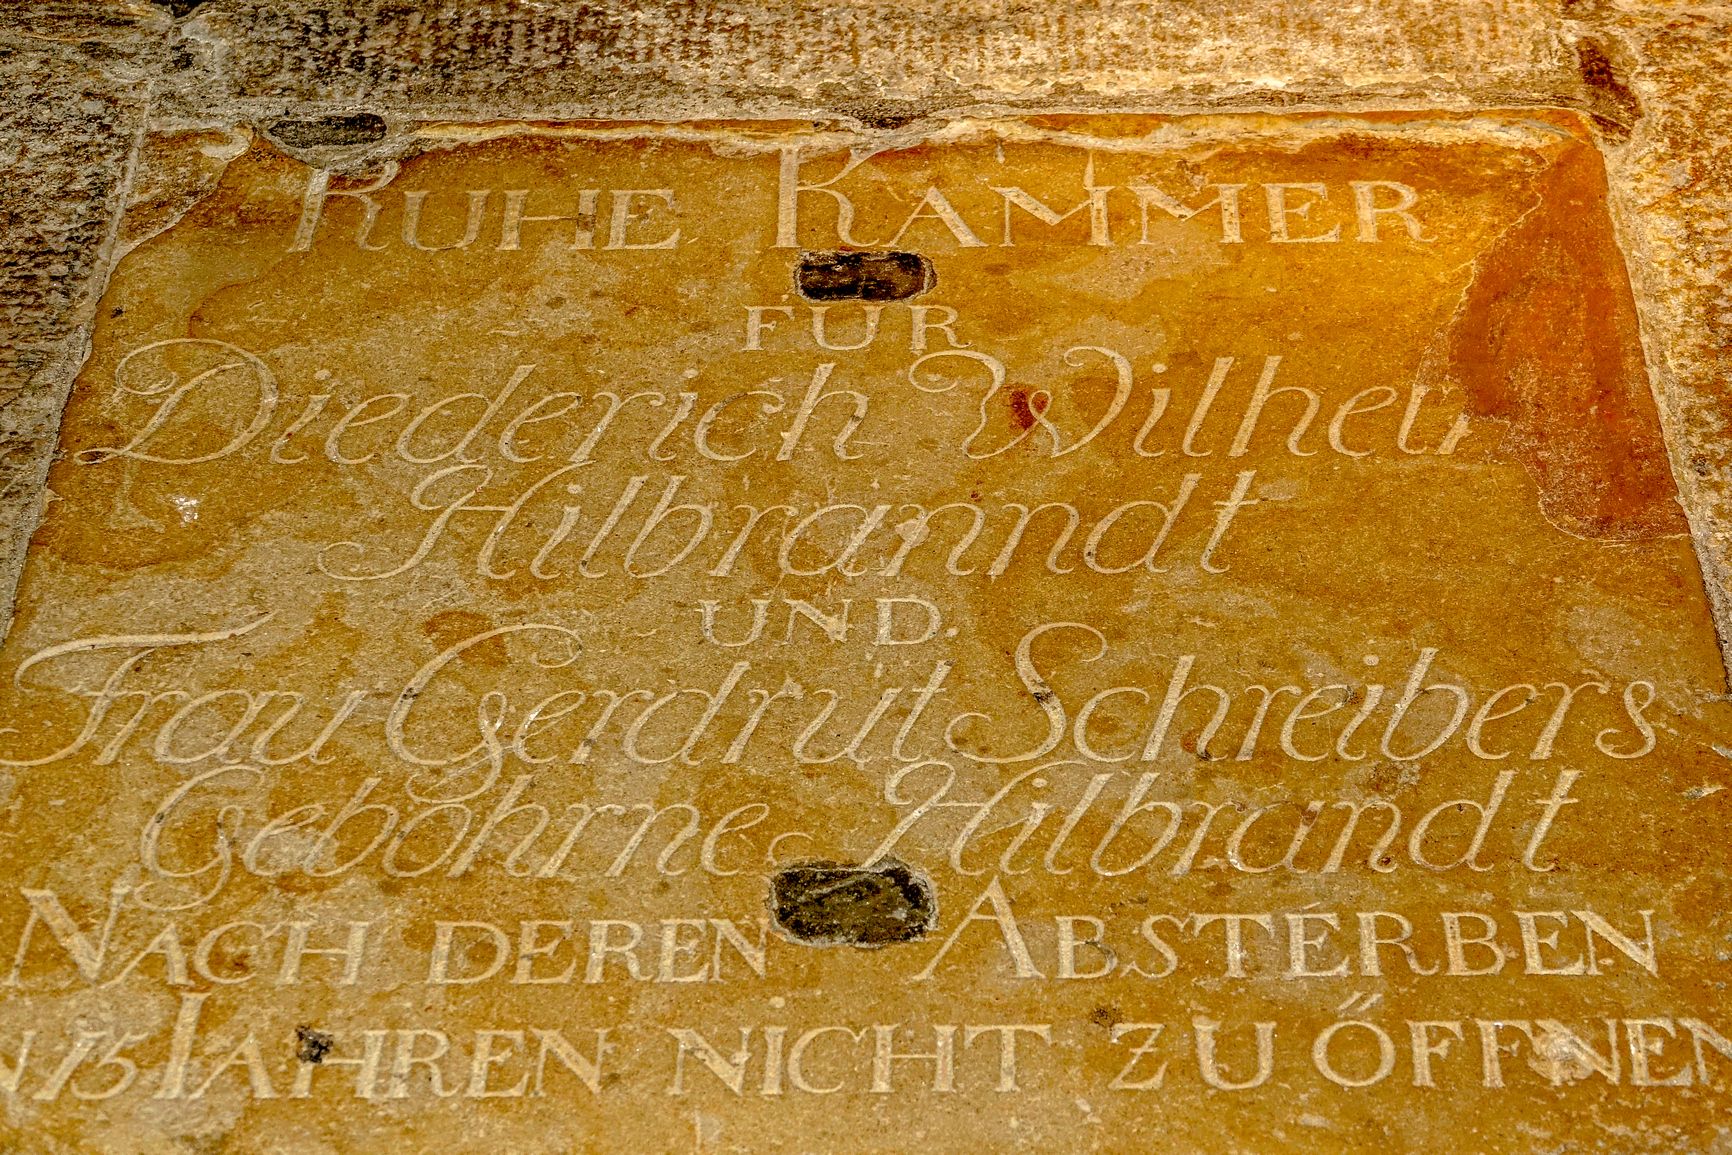 RUHE KAMMER
FUR
Diederich Wilhelm
Hilbranndt
UND.
Frau Gerdrut Schreibers
Gebohrne Hilbrandt
NACH DEREN ABSTERBEN
IN 15 IAHREN NICHT ZU ÖFFNEN